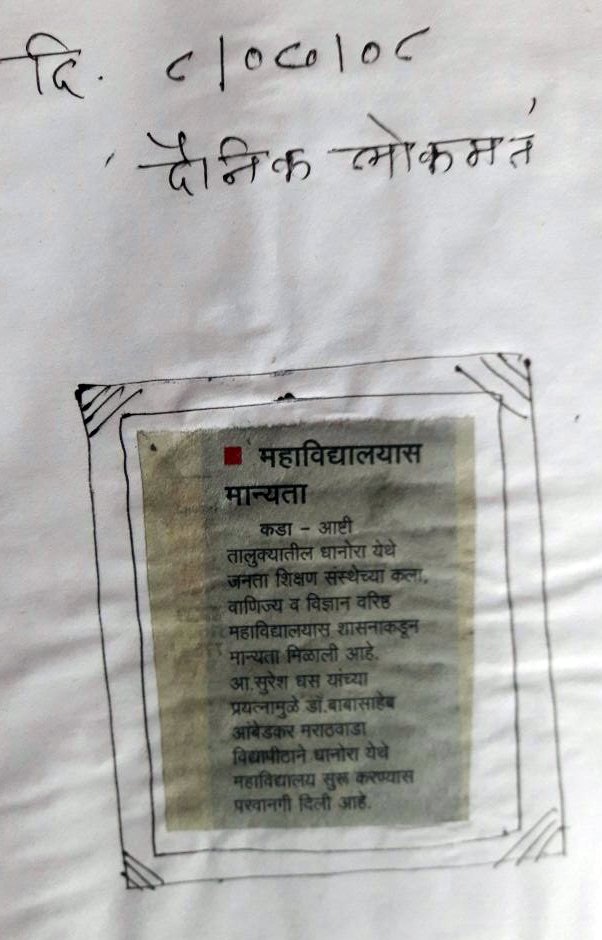 दि. ८/०८/०८
'दैनिक लोकमत'
महाविद्यालयास
मान्यता
कडा - आष्टी
तालुक्यातील धानोरा येथे
जनता शिक्षण संस्थेच्या कला,
वाणिज्य व विज्ञान वरिष्ठ
महाविद्यालयास शासनाकडून
मान्यता मिळाली आहे.
आ.सुरेश धस यांच्या
प्रयत्नामुळे डॉ.बाबासाहेब
आंबेडकर मराठवाडा
विद्यापीठाने धानोरा येथे
महाविद्यालय सुरू करण्यास
परवानगी दिली आहे.